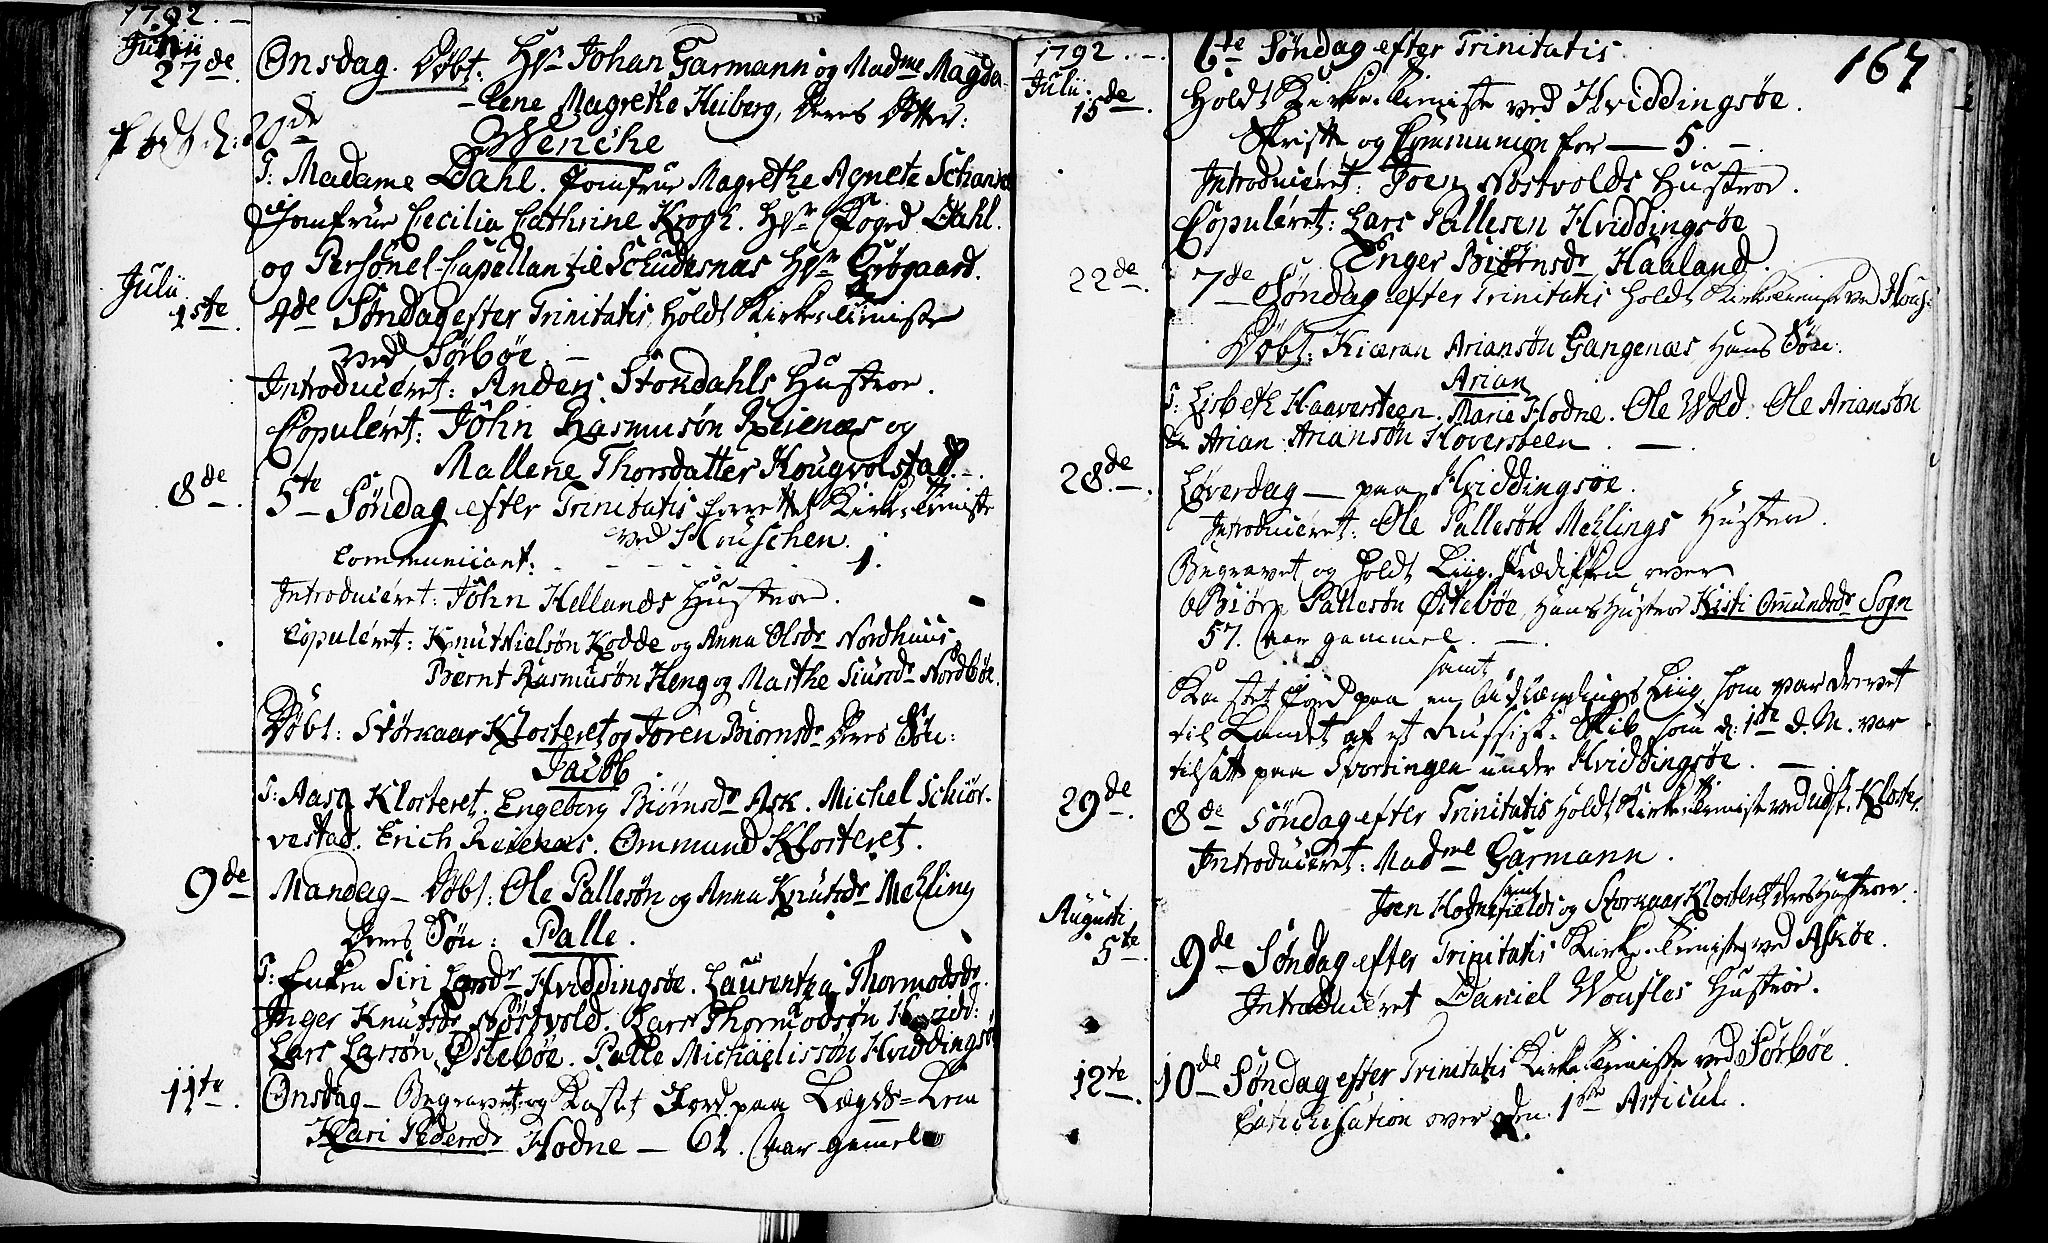 1792. -
Junii
27de. Onsdag. Døbt: Hr Johan Garmann og Madme Magda-
-lene Magrethe Heiberg, Deres Dotter:
fød d: 20de
Wenche
T: Madame Dahl. Jomfrue Magrethe Agnete Schanche
Jomfrue Cecilia Cathrine Krogh. Hr Foged Dahl.
og Personel-Capellan til Schudesnæs Hr Grøgaard.
Julii
1ste. 4de Søndag efter Trinitatis, holdt Kirke-tieniste
ved Sørbøe. -
Introduceret: Anders Stondahls Hustroe.
Copuleret: John Rasmusøn Reienæs og
Mallene Thorsdatter Hougvolstad. -
8de. 5te Søndag efter Trinitatis forrettet Kirke-tieniste
ved Houschen.
Communicant: - - - - - 1.
Introduceret: John Hellands Hustroe.
Copuleret: Knut Nielsøn Kodde og Anna Olsdr Nordhuus
Bernt Rasmusøn Heng og Marthe Siursdr Nordbøe.
Døbt: Størkaar Klosteret og Joren Biornsdr Deres Søn:
Jacob.
T: Aasa Klosteret. Engeborg Biørnsdr Ask. Michel Schiør-
vestad. Erich Reienæs. Ommund Klosteret.
9de Mandag - Døbt: Ole Pallesøn og Anna Knutsdr Mehling
Deres Søn: Palle.
T: Enken Siri Larsdr Hviddingsøe. Laurentza Thormodsdr.
Inger Knutsdr Nøstvold. Lars Thormodsøn Hvidd:
Lars Larsøn Østebøe. Palle Michaelissøn Hviddingsøe
11te. Onsdag - Begravet og Kastet Jord paa Lægds-Lem
Kari Pedersdr Hodne - 62. aar gammel
1792. -
167
Julii.
15de. 6te Søndag efter Trinitatis.
Holdt Kirke-tieniste ved Hviddingsøe.
Skrifte og Communion for - 5. -.
Introduceret: Joen Nøstvolds Hustroe.
Copuleret: Lars Pallesen Hviddingsøe
Enger Biørnsdr Haaland.
22de. 7de Søndag efter Trinitatis holdt Kirketieniste ved Hous:
Døbt: Kiæran Ariansøn Gangenæs Hans Søn:
Arian
T: Lisbeth Haaversteen. Marie Hodne. Ole Wold. Ole Ariansøn
Arian Ariansøn Hoversteen. -
28de. Løverdag - paa Hviddingsøe.
Introduceret: Ole Pallesøn Mehlings Hustroe.
Begravet og holdt Liig-Prædiken over
Biørn Pallesøn Østebøe, Hans Hustroe Kisti Omundsdr Sogn
57. aar gammel. -
samt
Kastet Jord paa en Udlændings Liig som var drevet
til Landet af et Russisk Skib som d: 1ste d. M. var
tilsatt paa Svortingen under Hviddingsøe. -
29de. 8de Søndag efter Trinitatis holdt Kirketieniste ved Udst. Kloster.
Introduceret: Madme Garmann.
samt
Joen Hodnefields og Storkaar Klosteret deres Hustroer.
Augusti
5te. 9de Søndag efter Trinitatis Kirke-tieniste ved Askøe.
Introduceret Daniel Woufles Hustroe.
12te. 10de Søndag efter Trinitatis Kirketieniste ved Sørbøe
Catechisation over den 1ste Articul.